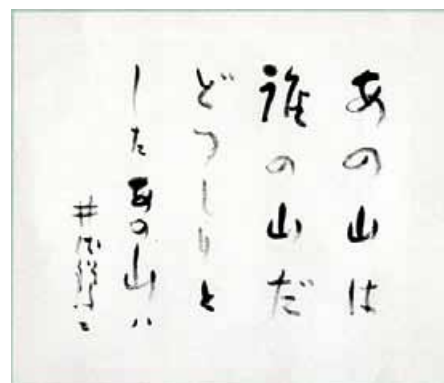 あの山は
誰の山だ
どつしりと
したあの山ハ
井伏鱒二